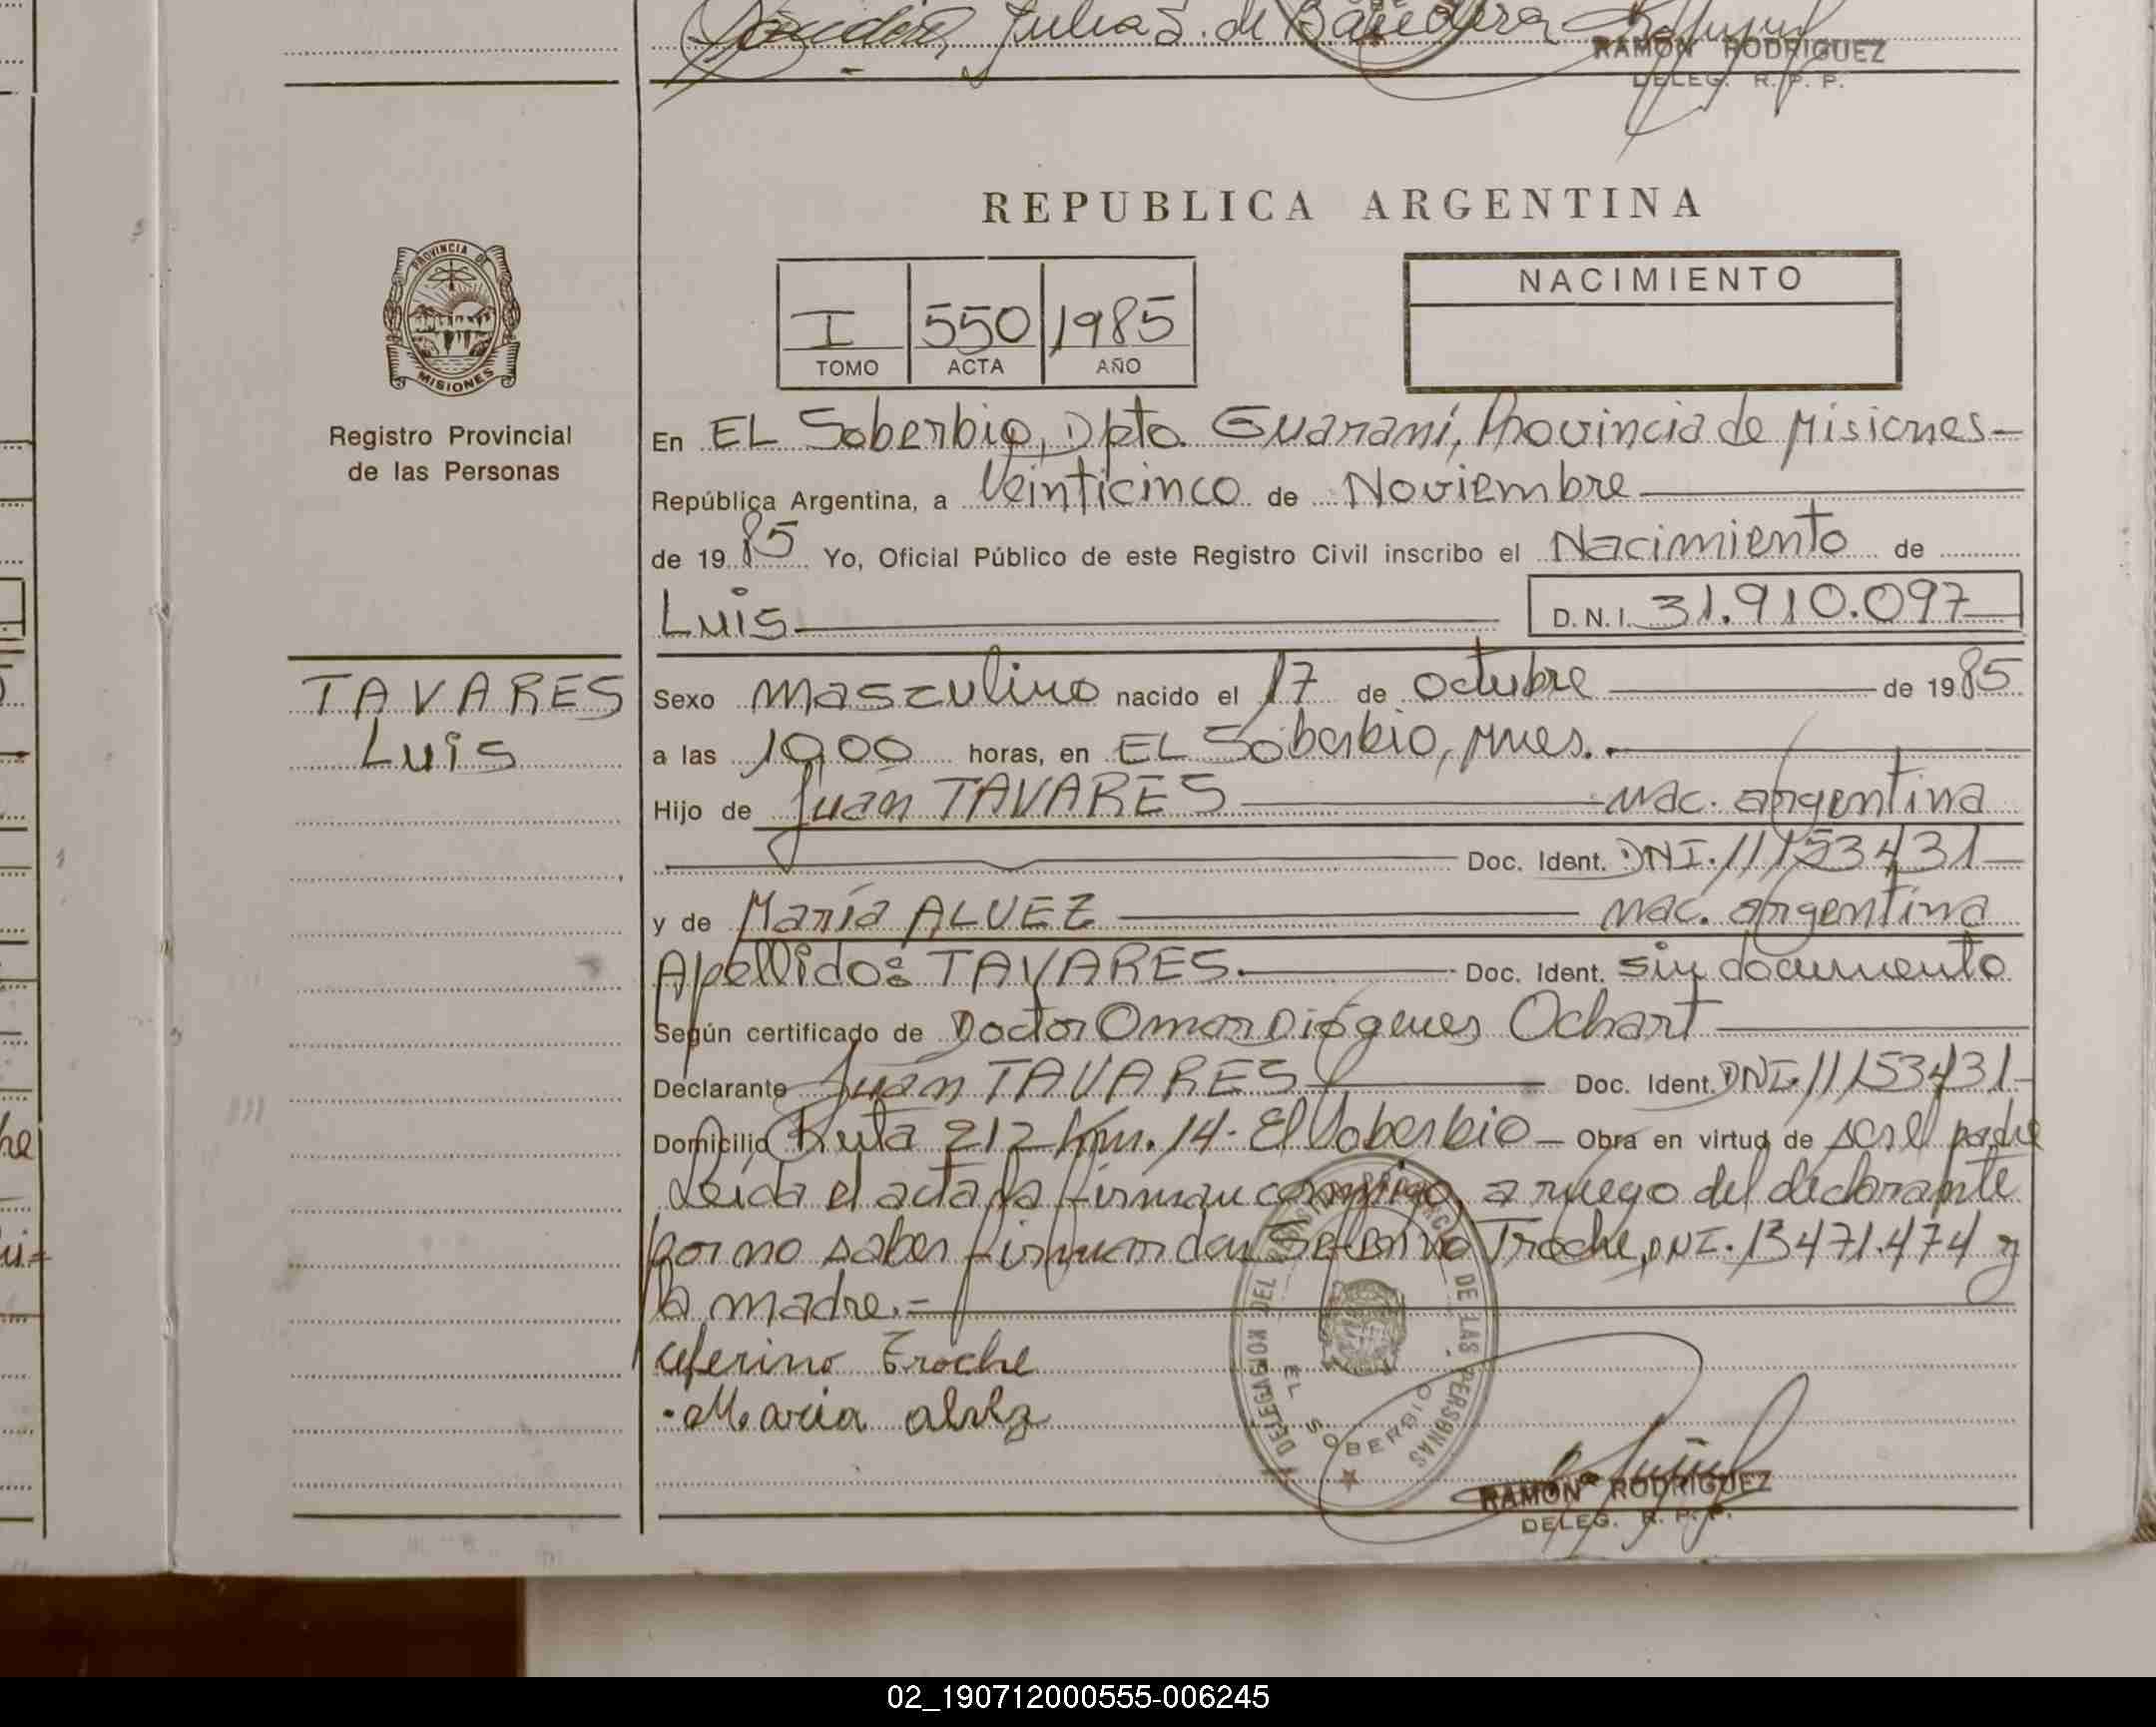 Julia S. de Bandera
RAMON RODRIGUEZ
DELEG. R. P. P.
REPUBLICA ARGENTINA
PROVINCIA DE
MISIONES
Registro Provincial
de las Personas
I 550 1985
TOMO ACTA AÑO
NACIMIENTO
En EL Soberbio, Dpto. Guaraní, Provincia de Misiones-
República Argentina, a Veinticinco de Noviembre
de 19 85 Yo, Oficial Público de este Registro Civil inscribo el Nacimiento de
Luis D.N.I. 31.910.097
TAVARES
Luis
Sexo masculino nacido el 17 de octubre de 19 85
a las 10,00 horas, en EL Soberbio, Mnes.
Hijo de Juán TAVARES nac. argentina
Doc. Ident. DNI. 11153431
y de María ALVEZ nac. argentina
Apellido: TAVARES. Doc. Ident. sin documento
Según certificado de Doctor Omar Diógenes Ochart
Declarante Juán TAVARES Doc. Ident. DNI. 11153431-
Domicilio Ruta 212 Km. 14- El Soberbio- Obra en virtud de ser el padre
Leída el acta la firman conmigo, a ruego del declarante
por no saber firmar don Ceferino Troche, DNI. 13471.474 y
la madre.-
ceferino Troche
Maria alvez
DELEGACION DEL REGISTRO PROVINCIAL DE LAS PERSONAS
EL SOBERBIO
RAMON RODRIGUEZ
DELEG. R. P. P.
02_190712000555-006245